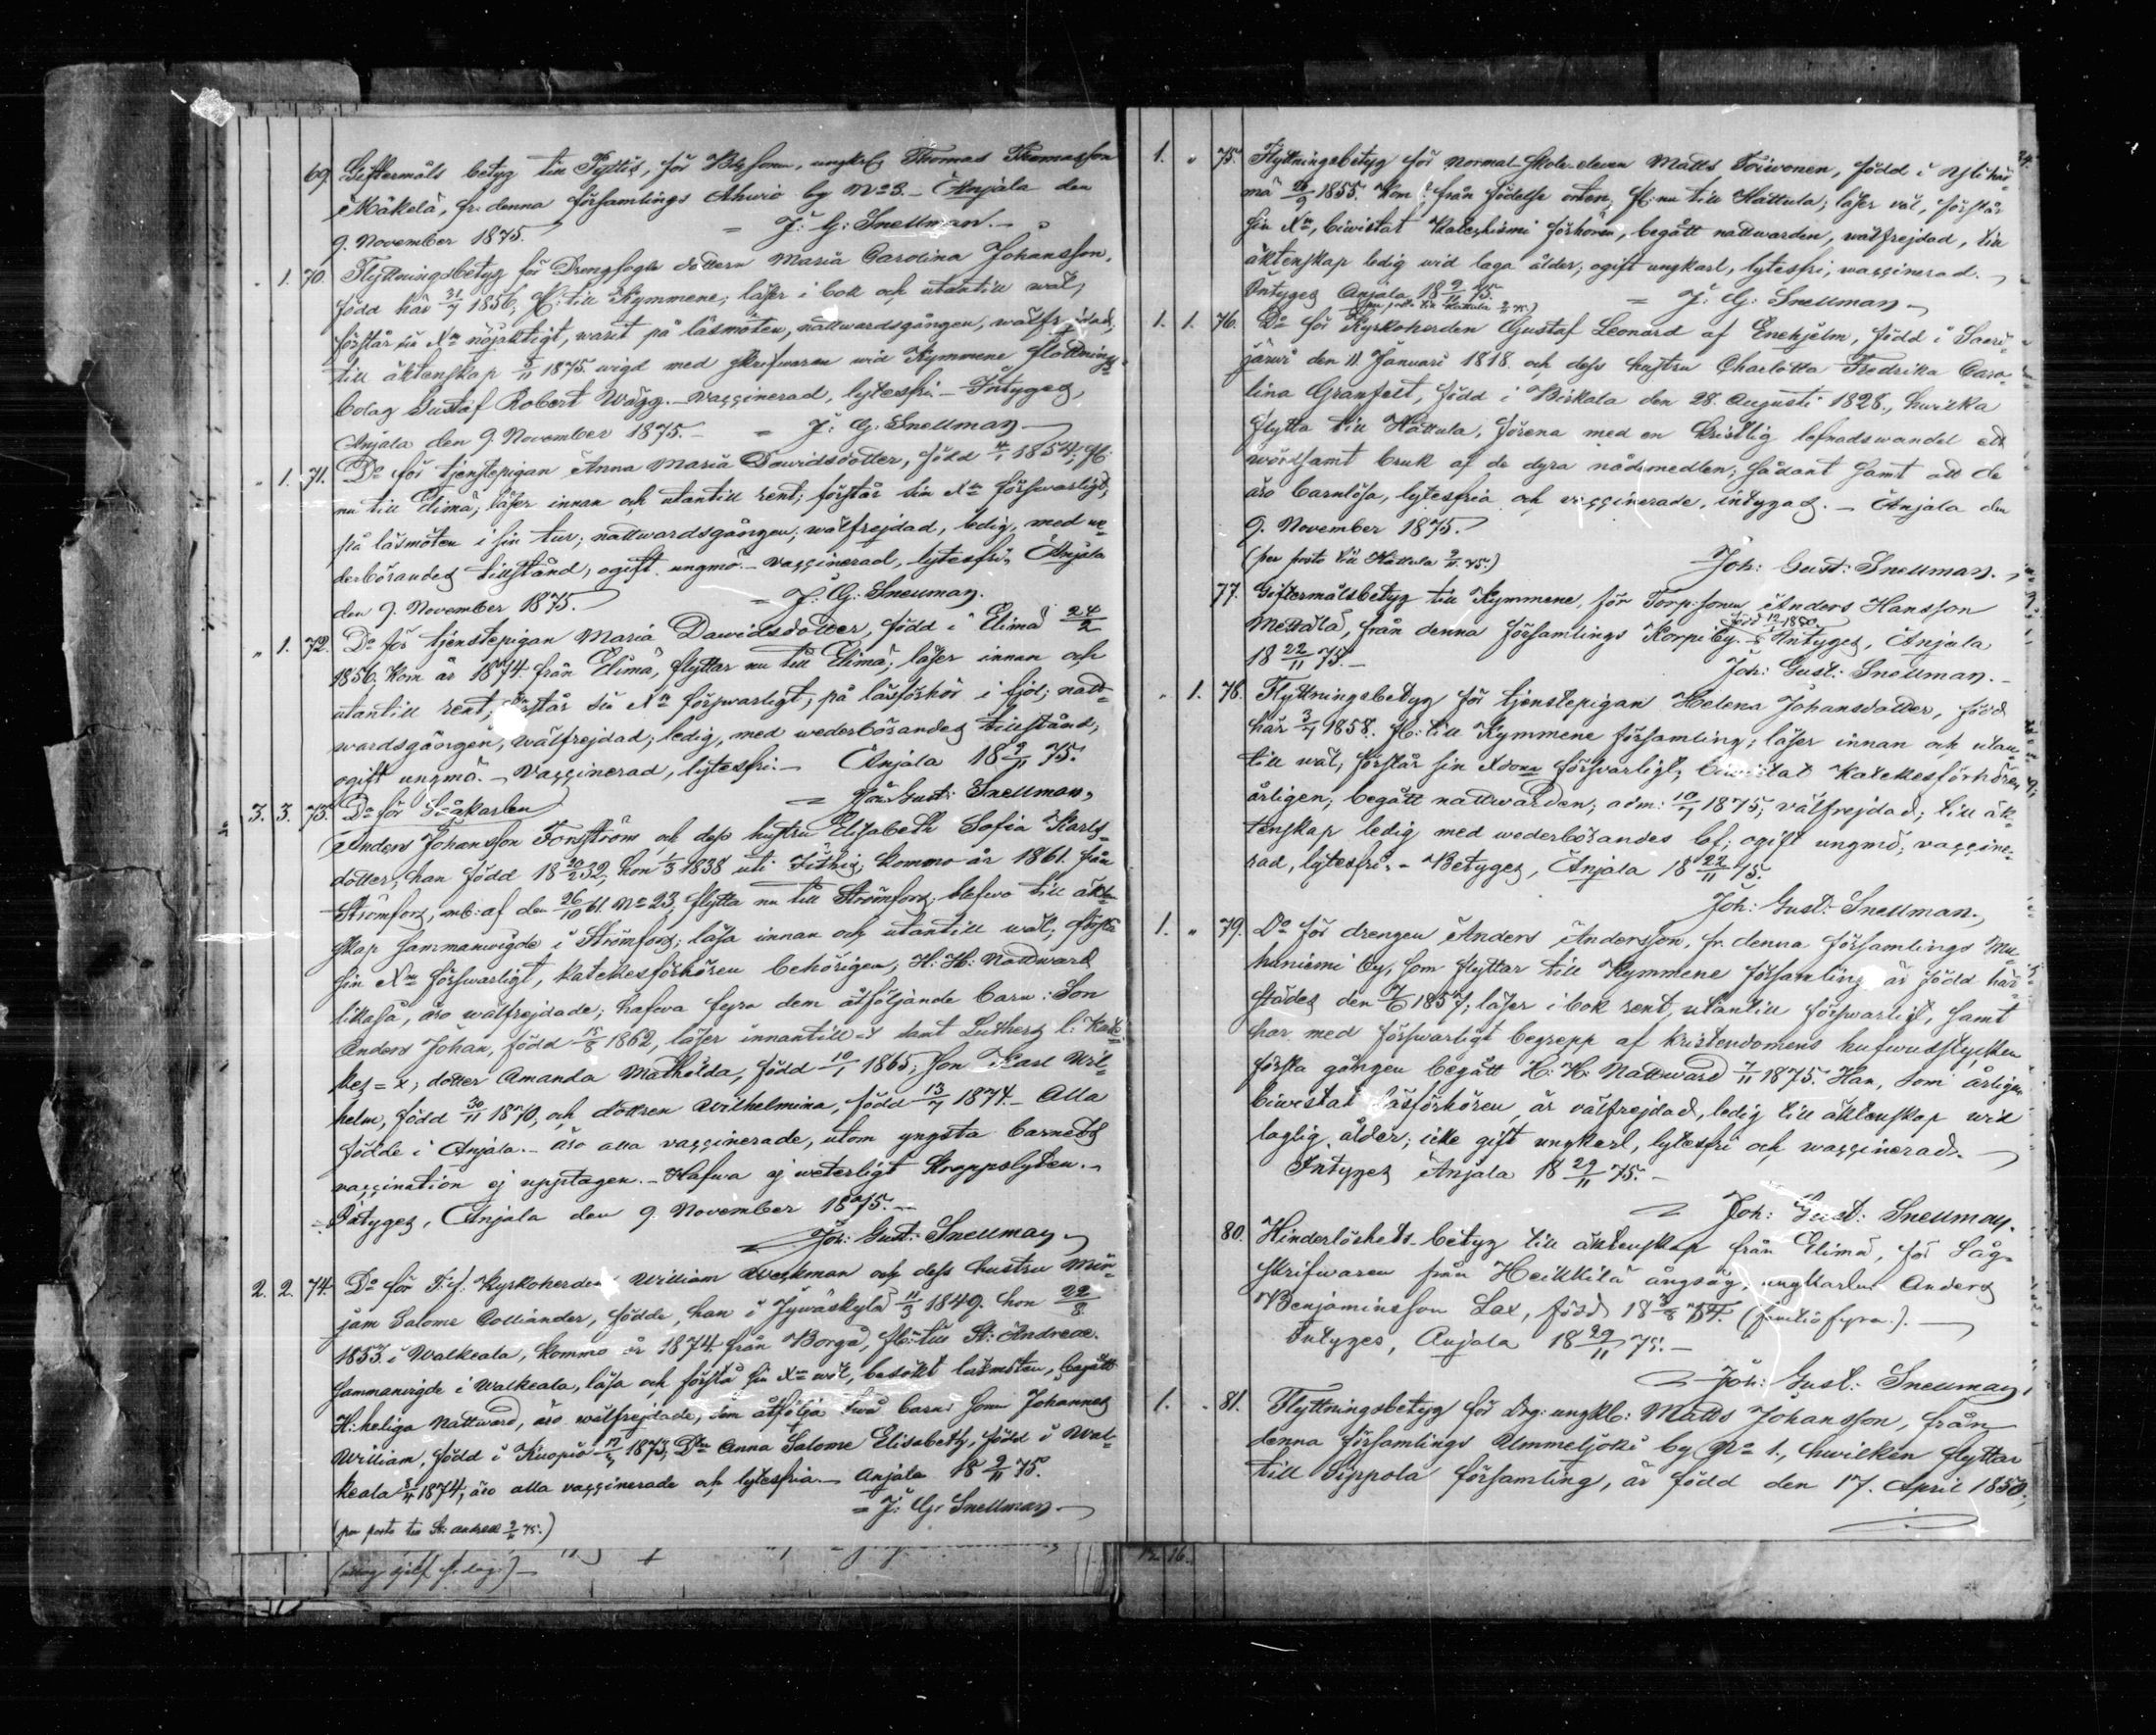 69. Giftermåls betyg till Pyttis, för Bdesonen, ungkarlen Thomas Thomasson
Mäkelä, fr. denna församlings Ahwio by No 3. – Anjala den
9. November 1875. = J: G: Snellman. –
„ 1. 70. Flyttningsbetyg för Drengfogde dottern Maria Carolina Johansson,
född här 31/7 1856, fl: till Kymmene; läser i bok och utantill wäl,
förstår sin Xm nöjaktigt, warit på läsmöten, nattwardsgången, wälfrejdad,
till äktenskap 5/11 1875. wigd med skrifwaren wid Kymmene flottnings
bolag Gustaf Robert Wägg. – vaccinerad, lytesfri. – Intygas,
Anjala den 9. November 1875. – = J: G: Snellman –
„ 1. 71. Do för tjenstepigan Anna Maria Dawidsdotter, född 1854; fl:
nu till Elimä; läser innan och utantill rent; förstår sin Xm förswarligt,
på läsmöten i sin tur; nattwardsgången, wälfrejdad, ledig, med we
derbörandes tillstånd, ogift ungmö. – vaccinerad, lytesfri. Anjala
den 9. November 1875. = J: G: Snellman.
„ 1. 72. Do för tjenstepigan Maria Dawidsdotter, född i Elimä 24/2
1856. Kom år 1874 från Elimä, flyttar nu till Elimä; läser innan och
utantill rent, förstår sin Xm förswarligt, på läsförhör i fjol; natt-
wardsgången, wälfrejdad; ledig, med wederbörandes tillstånd,
ogift ungmö. – Vaccinerad, lytesfri. – Anjala 18 9/11 75.
= Joh: Gust: Snellman,
3. 3. 73. Do för Sågkarlen
Anders Johansson Forsström och dess hustru Elisabeth Sofia Karls-
dotter, han född 18 32, hon 1838 uti; kommo år 1861. från
Strömfors, mb: af den 26/10 61. No 23, flytta nu till Strömfors; blefwo till äkten
skap sammanwigde i Strömfors; läsa innan och utantill wäl; förstå
sin Xm förswarligt, katekesförhören behörigen, H: H: Nattward
likaså, äro wälfrejdade; hafwa fyra dem åtföljande barn: Son
Anders Johan, född 15/8 1862, läser innantill = x samt Luthers l: Kate
kes = x; dotter Amanda Mathilda, född 10/1 1865; son Karl Wil-
helm, född 30/11 1870, och dottren Wilhelmina, född 13/7 1874. – Alla
födde i Anjala. – äro alla vaccinerade, utom yngsta barnets
vaccination ej upptagen. – Hafwa ej weterligt kroppslyten. –
Intygas, Anjala den 9. November 1875. –
Joh: Gust: Snellman
2. 2. 74. Do för T:f: Kyrkoherden William Weckman och dess hustru Mir-
jam Salome Colliander, födde, han i Jywäskylä 11/3 1849. hon 22/8
1853. i Walkeala, kommo år 1874 från Borgå, fl: till St: Andreae.
sammanwigde i Walkeala, läsa och förstå sin Xm wäl, besökt läsmöten, begått
H: heliga Nattward, äro wälfrejdade; dem åtfölja twå barn: sonen Johannes
William, född i Kuopio 1873; Dtn Anna Salome Elisabeth, född i Wal-
keala 1874, äro alla vaccinerade och lytesfria. – Anjala 18 9/11 75.
= J: G: Snellman –
(per posto till St: Andreae 9/11 75.)
1. „ 75. Flyttningsbetyg för normal-skole-eleven Matts Toiwonen, född i Ylihär-
mä 1855. Kom: från födelse orten, fl: nu till Hattula; läser wäl, förstår
sin Xm, biwistat Katechismi förhören, begått nattwarden, wälfrejdad, till
äktenskap ledig wid laga ålder; ogift ungkarl, lytesfri, vaccinerad. –
Intygas Anjala 18 9/11 75. = J: G: Snellman –
(per posto till Hattula 9/11 75.)
1. 1. 76. Do för Kyrkoherden Gustaf Leonard af Enehjelm, född i Saari-
järwi den 11 Januari 1818. och dess hustru Charlotta Fredrika Caro-
lina Granfelt, född i Birkala den 28. Augusti 1828., hwilka
flytta till Hattula, förena med en kristlig lefnadswandel ett
wördsamt bruk af de dyra nådemedlen; sådant samt att de
äro barnlösa, lytesfria och vaccinerade, intygas. – Anjala den
9. November 1875.
(per posto till Hattula 9/11 75.) Joh: Gust: Snellman.
77. Giftermålsbetyg till Kymmene, för Torp:sonen Anders Hansson
Mettälä, från denna församlings Korpi by. – Intygas, Anjala
18 22/11 75. –
Joh: Gust: Snellman. –
„ 1. 78. Flyttningsbetyg för tjenstepigan Helena Johansdotter, född
här 3/7 1858. fl: till Kymmene församling; läser innan och utan
till wäl, förstår sin Xdom förswarligt, biwistat Katekesförhören
årligen; begått nattwarden; adm: 10/7 1875; välfrejdad; till äk-
tenskap ledig med wederbörandes lof; ogift ungmö, vaccine-
rad, lytesfri. – Betygas, Anjala 18 22/11 75.
Joh: Gust: Snellman.
1. „ 79. Do för drengen Anders Andersson, fr. denna församlings Mu-
huniemi by, som flyttar till Kymmene församling är född här-
städes den 1857; läser i bok rent, utantill förswarligt, samt
har med förswarligt begrepp af kristendomens hufwudstycken
första gången begått H: H: Nattward 7/11 1875. Han, som årligen
biwistat läsförhören, är välfrejdad, ledig till äktenskap wid
laglig ålder; icke gift ungkarl, lytesfri och waccinerad. –
Intygas Anjala 18 29/11 75. –
Joh: Gust: Snellman.
80. Hinderlöshets-betyg till äktenskap från Elimä, för Såg-
skrifwaren från Heikkilä ångsåg, ungkarlen Anders
Benjaminsson Lax, född 18 54. (femtiofyra). –
Intygas, Anjala 18 29/11 75. –
Joh: Gust: Snellman,
1. „ 81. Flyttningsbetyg för drg: ungkl: Matts Johansson, från
denna församlings Ummeljoki by No 1., hwilken flyttar
till Sippola församling, är född den 17. April 1850;